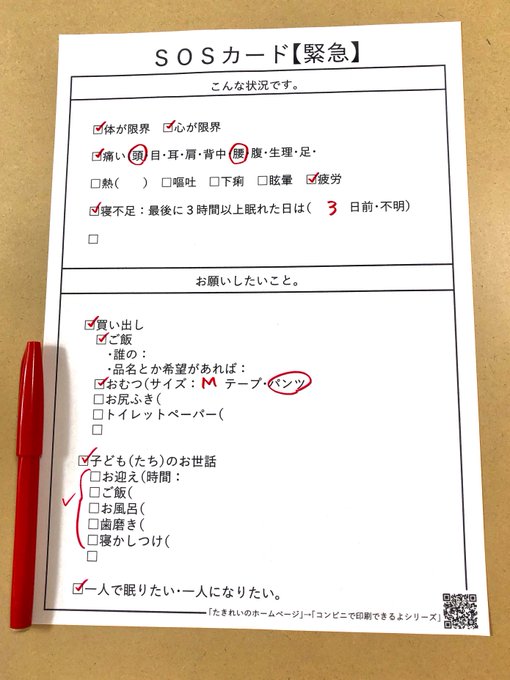 SOSカード【緊急】
こんな状況です。
☑体が限界 ☑心が限界
☑痛い・頭・目・耳・肩・背中・腰・腹・生理・足・
□熱( ) □嘔吐 □下痢 □眩暈 ☑疲労
☑寝不足：最後に３時間以上眠れた日は( 3 日前・不明)
□
お願いしたいこと。
☑買い出し
☑ご飯
・誰の：
・品名とか希望があれば：
☑おむつ(サイズ： M テープ・パンツ
□お尻ふき(
□トイレットペーパー(
□
☑子ども(たち)のお世話
□お迎え(時間：
□ご飯(
□お風呂(
□歯磨き(
□寝かしつけ(
□
☑一人で眠りたい・一人になりたい。
「たきれいのホームページ」→「コンビニで印刷できるよシリーズ」